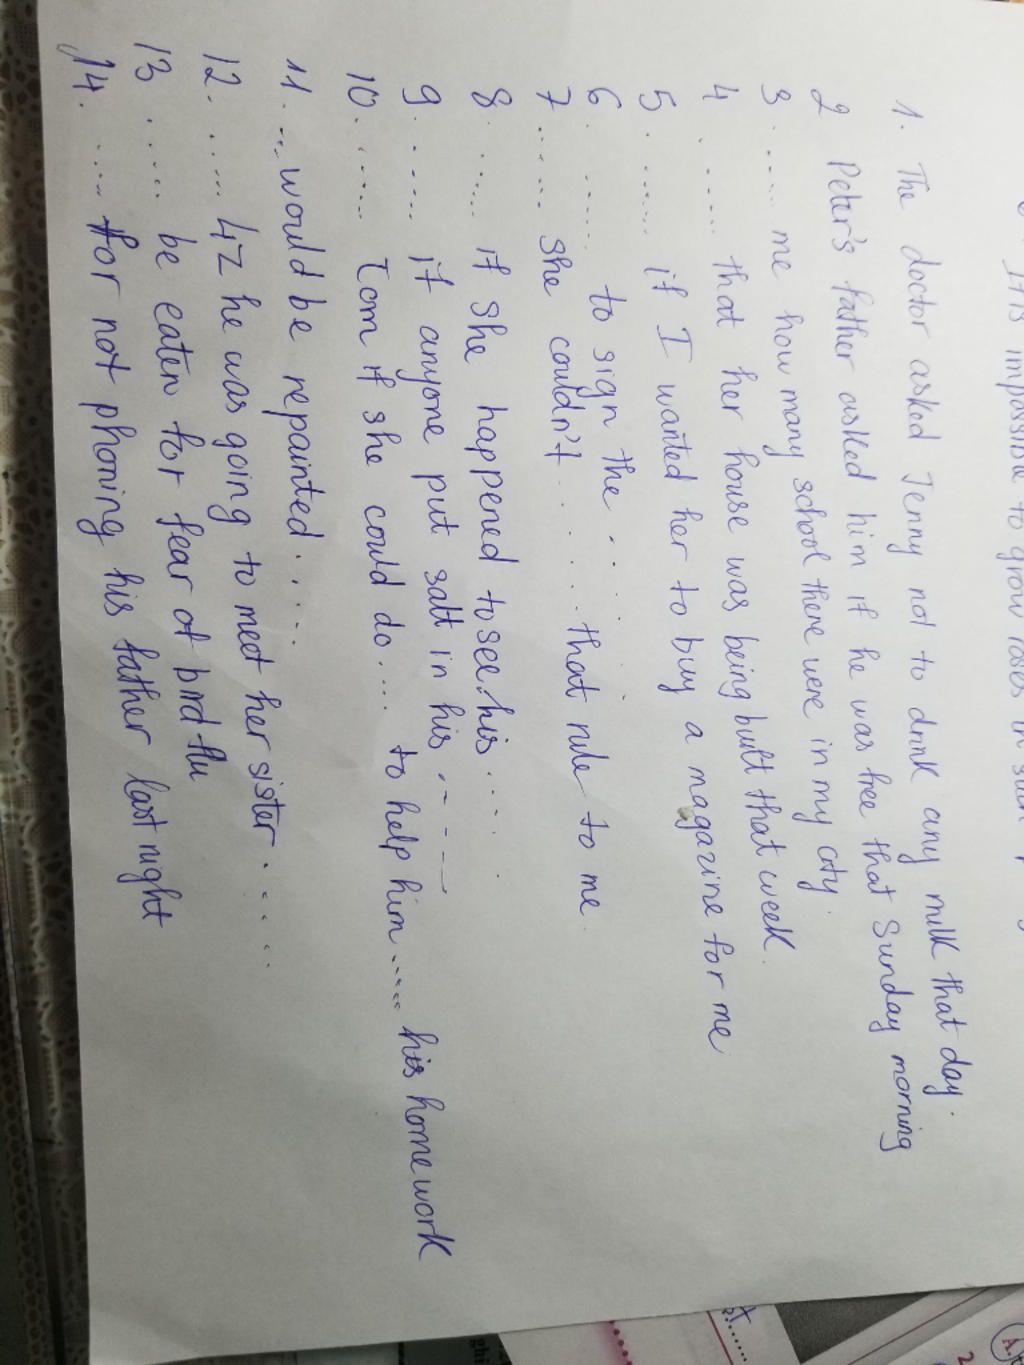 It is impossible to grow roses in such
1. The doctor asked Jenny not to drink any milk that day.
2 Peter's father asked him if he was free that Sunday morning
3 ..... me how many school there were in my city.
4 ...... that her house was being built that week.
5. ...... if I wanted her to buy a magazine for me
6 ...... to sign the ......
7 ....... she couldn't ...... that rule to me.
8 ...... if she happened to see his .....
9 ...... if anyone put salt in his ----
10. ...... Tom if she could do .... to help him ..... his homework
11. ... would be repainted .....
12. ..... 4Z he was going to meet her sister .....
13 ..... be eaten for fear of bird flu
14. ..... for not phoning his father last night
A.
2